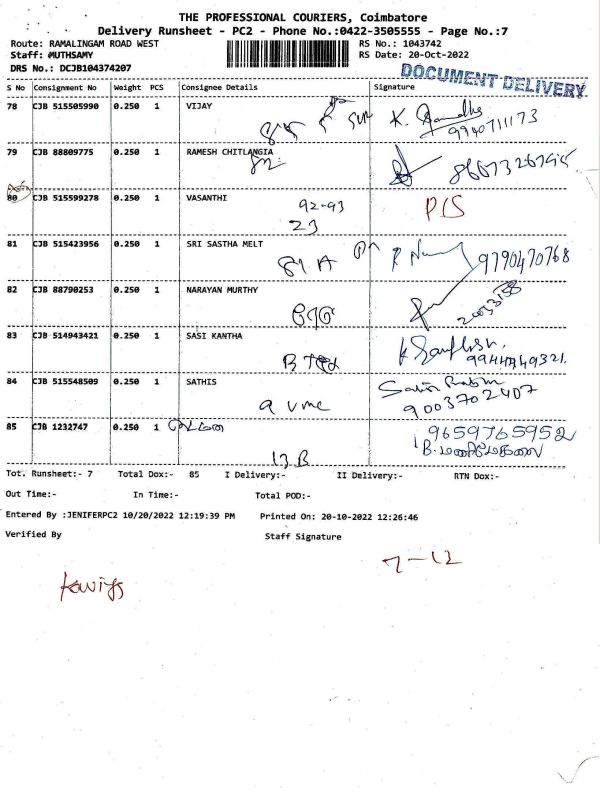 THE PROFESSIONAL COURIERS, Coimbatore
Delivery Runsheet - PC2 - Phone No.:0422-3505555 - Page No.:7
Route: RAMALINGAM ROAD WEST RS No.: 1043742
Staff: MUTHSAMY RS Date: 20-Oct-2022
DRS No.: DCJB104374207 DOCUMENT DELIVERY
S No Consignment No Weight PCS Consignee Details Signature
78 CJB 515505990 0.250 1 VIJAY
K.
9940711173
79 CJB 88809775 0.250 1 RAMESH CHITLANGIA
80 CJB 515599278 0.250 1 VASANTHI
92-93 P/S
23
81 CJB 515423956 0.250 1 SRI SASTHA MELT
81 A 9790470768
82 CJB 88790253 0.250 1 NARAYAN MURTHY
83 CJB 514943421 0.250 1 SASI KANTHA
84 CJB 515548509 0.250 1 SATHIS
9003702407
85 CJB 1232747 0.250 1
9659765952
13 B
Tot. Runsheet:- 7 Total Dox:- 85 I Delivery:- II Delivery:- RTN Dox:-
Out Time:- In Time:- Total POD:-
Entered By :JENIFERPC2 10/20/2022 12:19:39 PM Printed On: 20-10-2022 12:26:46
Verified By Staff Signature
7-12